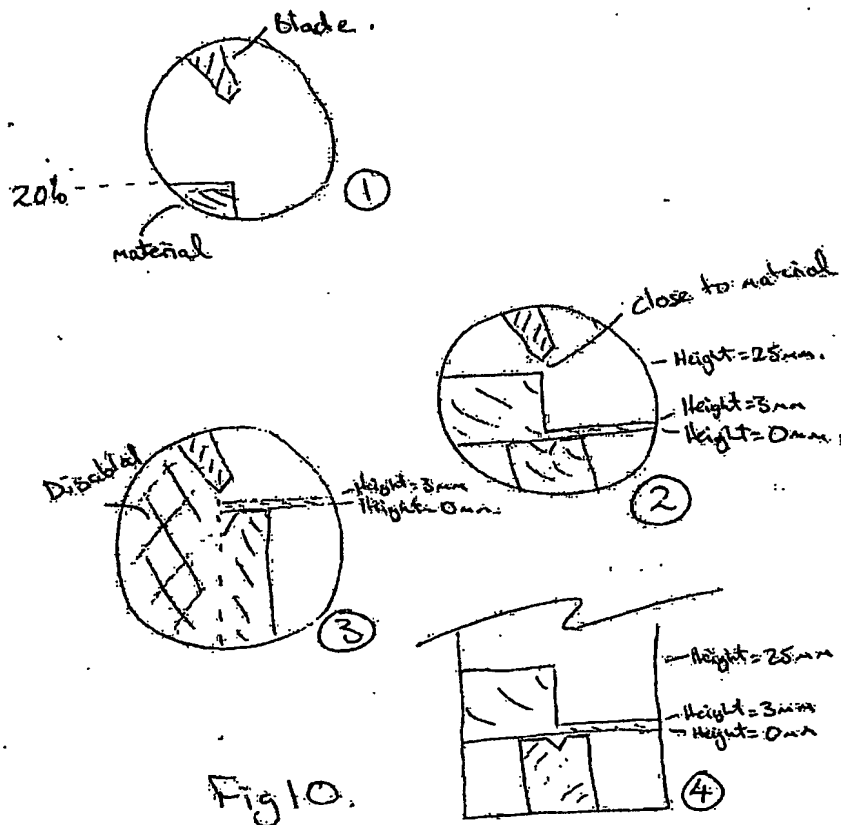 Blade.
20%
material
1
Close to material
Height = 25mm.
Height = 3mm
Height = 0mm.
2
Disabled
Height = 3mm
Height = 0mm.
3
Height = 25mm
Height = 3mm
Height = 0mm
4
Fig 10.